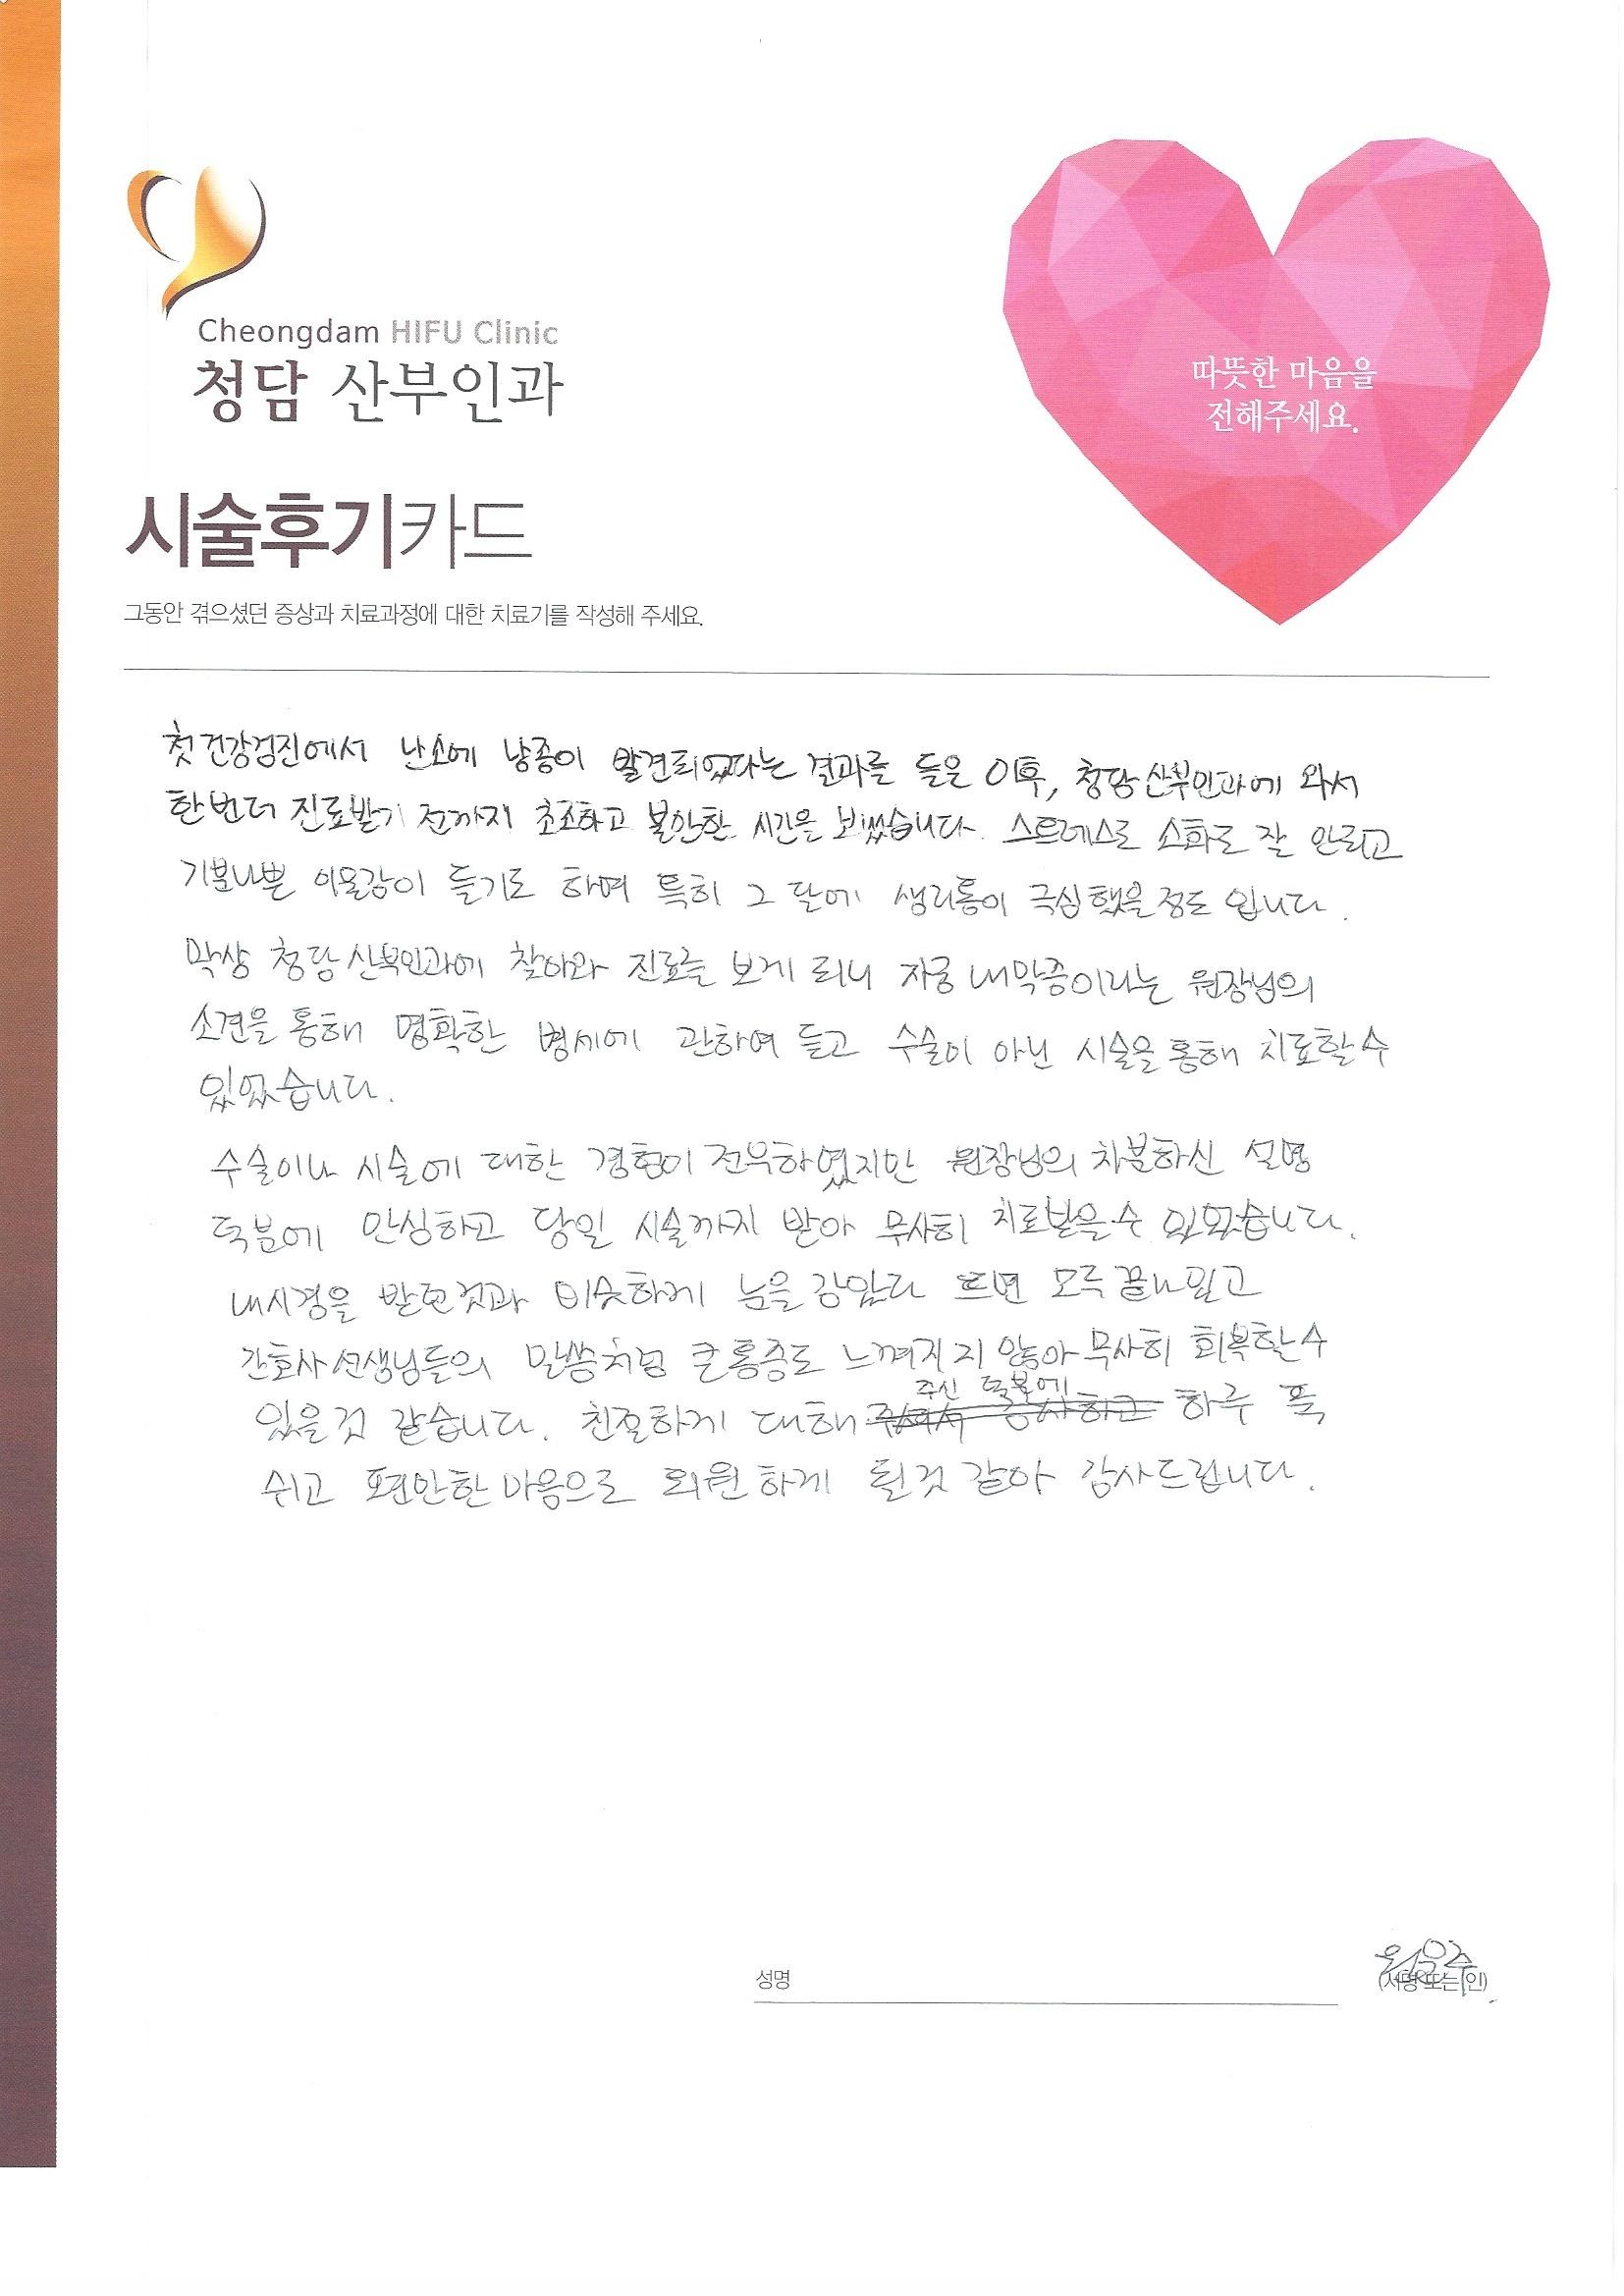 Cheongdam HIFU Clinic
청담 산부인과
따뜻한 마음을
전해주세요.
시술후기카드
그동안 겪으셨던 증상과 치료과정에 대한 치료기를 작성해 주세요.
첫 건강검진에서 난소에 낭종이 발견되었다는 결과를 들은 이후, 청담산부인과에 와서
한번더 진료받기 전까지 초조하고 불안한 시간을 보냈습니다. 스트레스로 소화도 잘 안되고
기분나쁜 이물감이 들기도 하며 특히 그 달에 생리통이 극심했을정도 입니다.
막상 청담산부인과에 찾아와 진료를 보게 되니 자궁내막증이라는 원장님의
소견을 통해 명확한 병세에 관하여 듣고 수술이 아닌 시술을 통해 치료할수
있었습니다.
수술이나 시술에 대한 경험이 전무하였지만 원장님의 차분하신 설명
덕분에 안심하고 당일 시술까지 받아 무사히 치료받을수 있었습니다.
내시경을 받현것과 비슷하게 눈을 감았다 뜨면 모두 끝나있고
간호사선생님들의 말씀처럼 큰통증도 느껴지지 않아 무사히 회복할수
주신 덕분에
있을것 같습니다. 친절하게 대해 하루 푹
쉬고 편안한마음으로 퇴원하게 될것 같아 감사드립니다.
성명
(서명 또는 인)